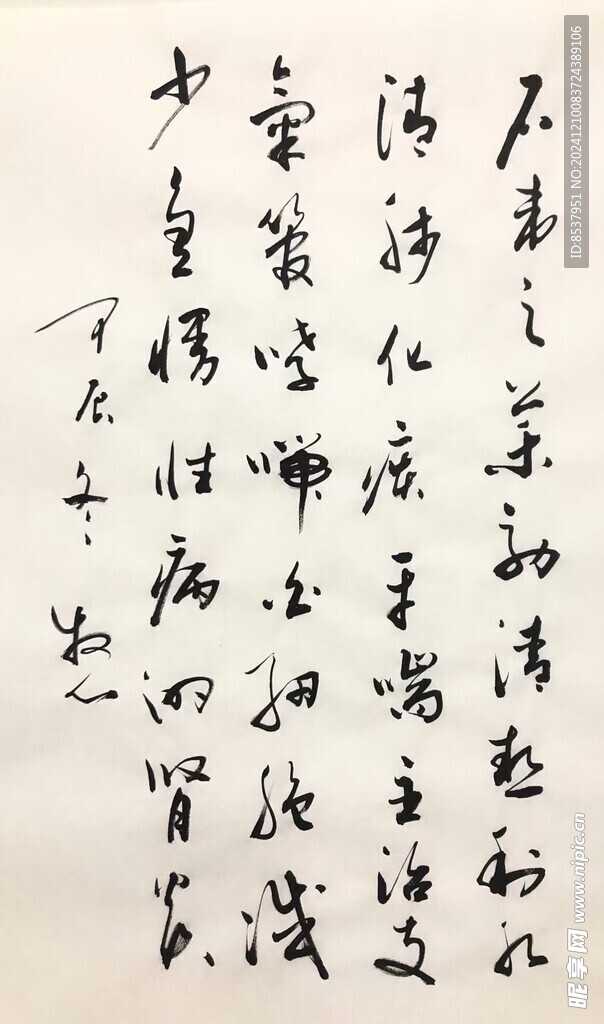 石韦之药効清热利水
清肺化痰平喘主治支
氣管哮喘白细胞减
少急慢性病的肾炎
甲辰冬 牧心
ID:8537951 NO:20241210083724389106
昵享网 www.nipic.cn